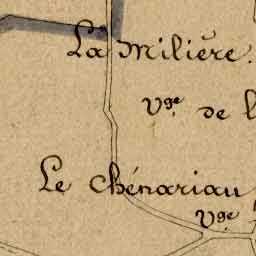 La Milière.
Vge de l
Le Chénariau
Vge